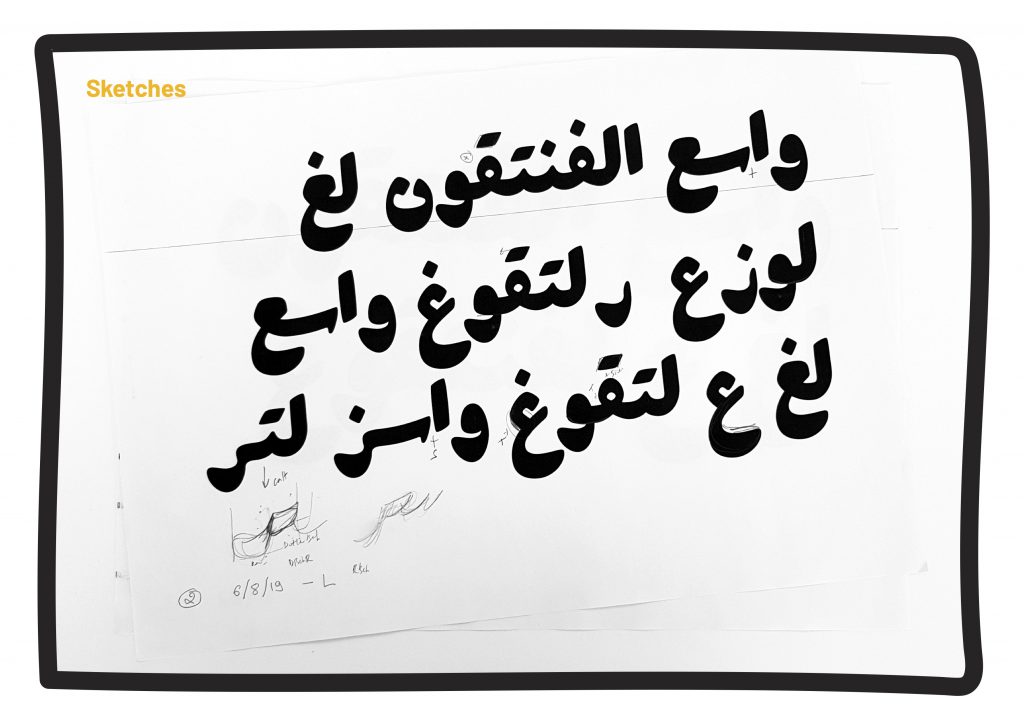 Sketches
واسع الفنتقون لغ
لوزع رلتقوغ واسع
لغ ع لتقوغ واسز لتر
calt
2 6/8/19 – L